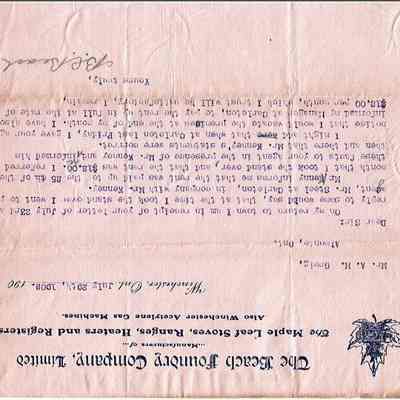 The Beach Foundry Company, Limited
....Manufacturers of...
The Maple Leaf Stoves, Ranges, Heaters and Registers
Also Winchester Acetylene Gas Machines.
Winchester, Ont. July 29th, 190
Mr. A. H. A.
Almonte, Ont.
Dear Sir:
On my return to town I am in receipt of your letter of July 23rd
reply to same would say, that at the time I took the stand over I went to y
gent, Mr. Steel of Carleton, in company with Mr. Kenney.
Mr. Kenny informs me that the rent was paid up to the 25 th of the
month that I took the stand over and that the rent was $18.00. I referred
these facts to your agent in the presence of Mr. Kenney and him
then and there that Mr. Kenney,s statements were correct.
I might add that when at Carleton last Friday, I gave your ag
notice that I would vacate the premises at the end of my month. I have also
informed Managers at Carleton, to pay the rent up in full at the rate of
$18.00 per month, which I trust will be satisfactory, I remain,
Yours truly,
B.C. Beach